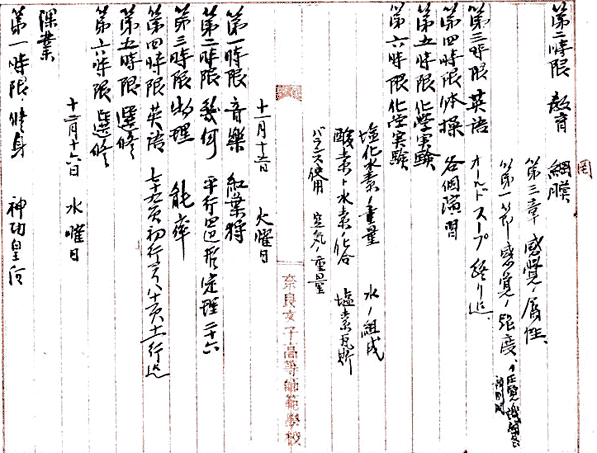 第二時限 教育 網膜
第三章 感覚ノ属性、
第一節 感覚ノ強度、
第三時限 英語 オールドスープ 終り迄
第四時限 体操 各個演習
第五時限 化学実験
第六時限 化学実験
塩化水素ノ重量 水ノ組成
酸素ト水素ノ化合 塩素瓦斯
バランス使用 空気ノ重量
奈良女子高等師範學校
十二月十五日 火曜日
第一時限 音樂 紅葉狩
第二時限 幾何 平行四辺形定理二十六
第三時限 物理 能率
第四時限 英語 七十九頁初行ヨリ八十頁十一行迄
第五時限 選修
第六時限 選修
十二月十六日 水曜日
課業
第一時限 修身 神功皇后